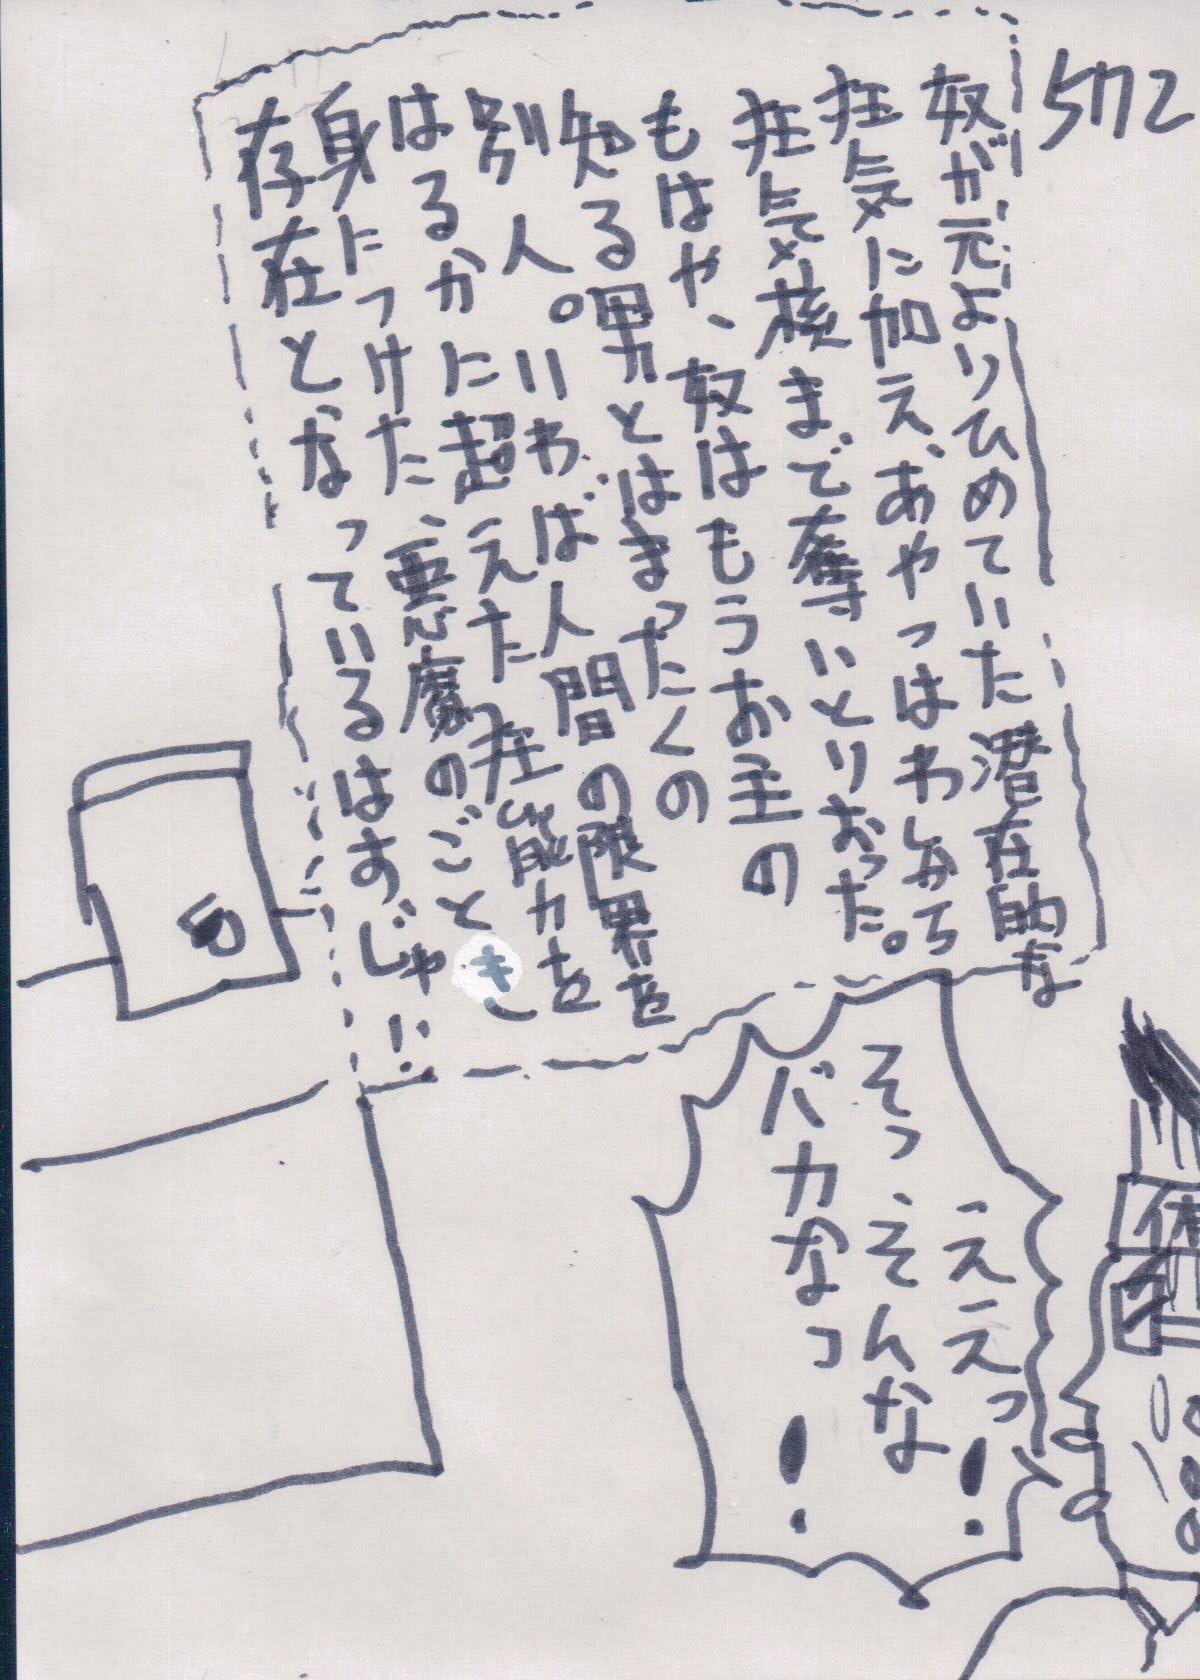 5172
奴が元よりひめていた潜在的な
狂気に加え、あやつはわしから
狂気核まで奪いとりおった。
もはや、奴はもうお主の
知る男とはまったくの
別人。いわば人間の限界を
はるかに超えた、狂能力を
身につけた、悪魔のごとき
存在となっているはずじゃ!!
ええっ!
そっ、そんな
バカなっ!